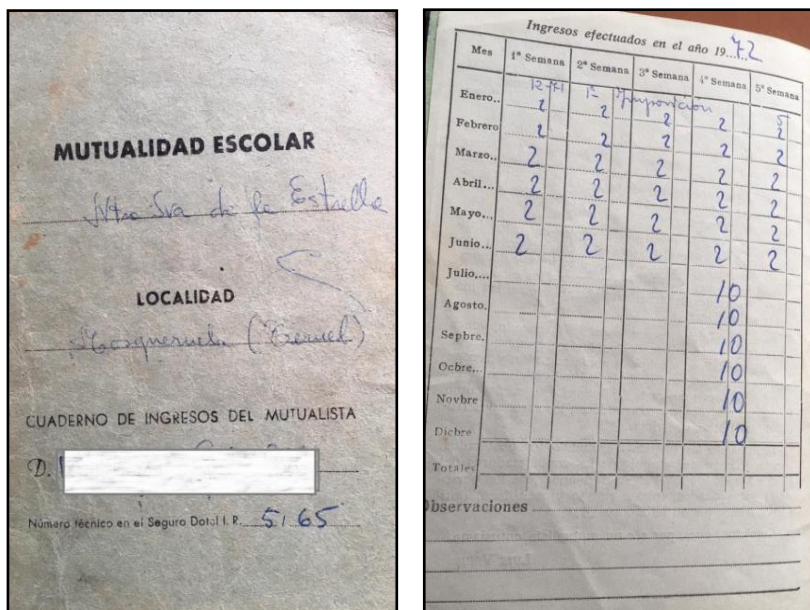 MUTUALIDAD ESCOLAR
Ntra Sra de la Estrella
LOCALIDAD
Mosqueruela (Teruel)
CUADERNO DE INGRESOS DEL MUTUALISTA
D.
Número técnico en el Seguro Dotal I. P. 5165
Ingresos efectuados en el año 19 72
Mes 1ª Semana 2ª Semana 3ª Semana 4ª Semana 5ª Semana
12-71 1ª Imposición 5
Enero.. 2 2 2 2 2
Febrero 2 2 2 2 2
Marzo.. 2 2 2 2 2
Abril... 2 2 2 2 2
Mayo... 2 2 2 2 2
Junio... 2 2 2 2 2
Julio.... 10
Agosto. 10
Sepbre. 10
Ocbre... 10
Novbre 10
Dicbre 10
Totales
Observaciones